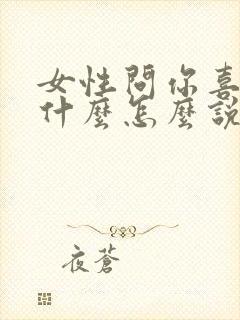 女性問你喜
什麼怎麼說
夜蒼